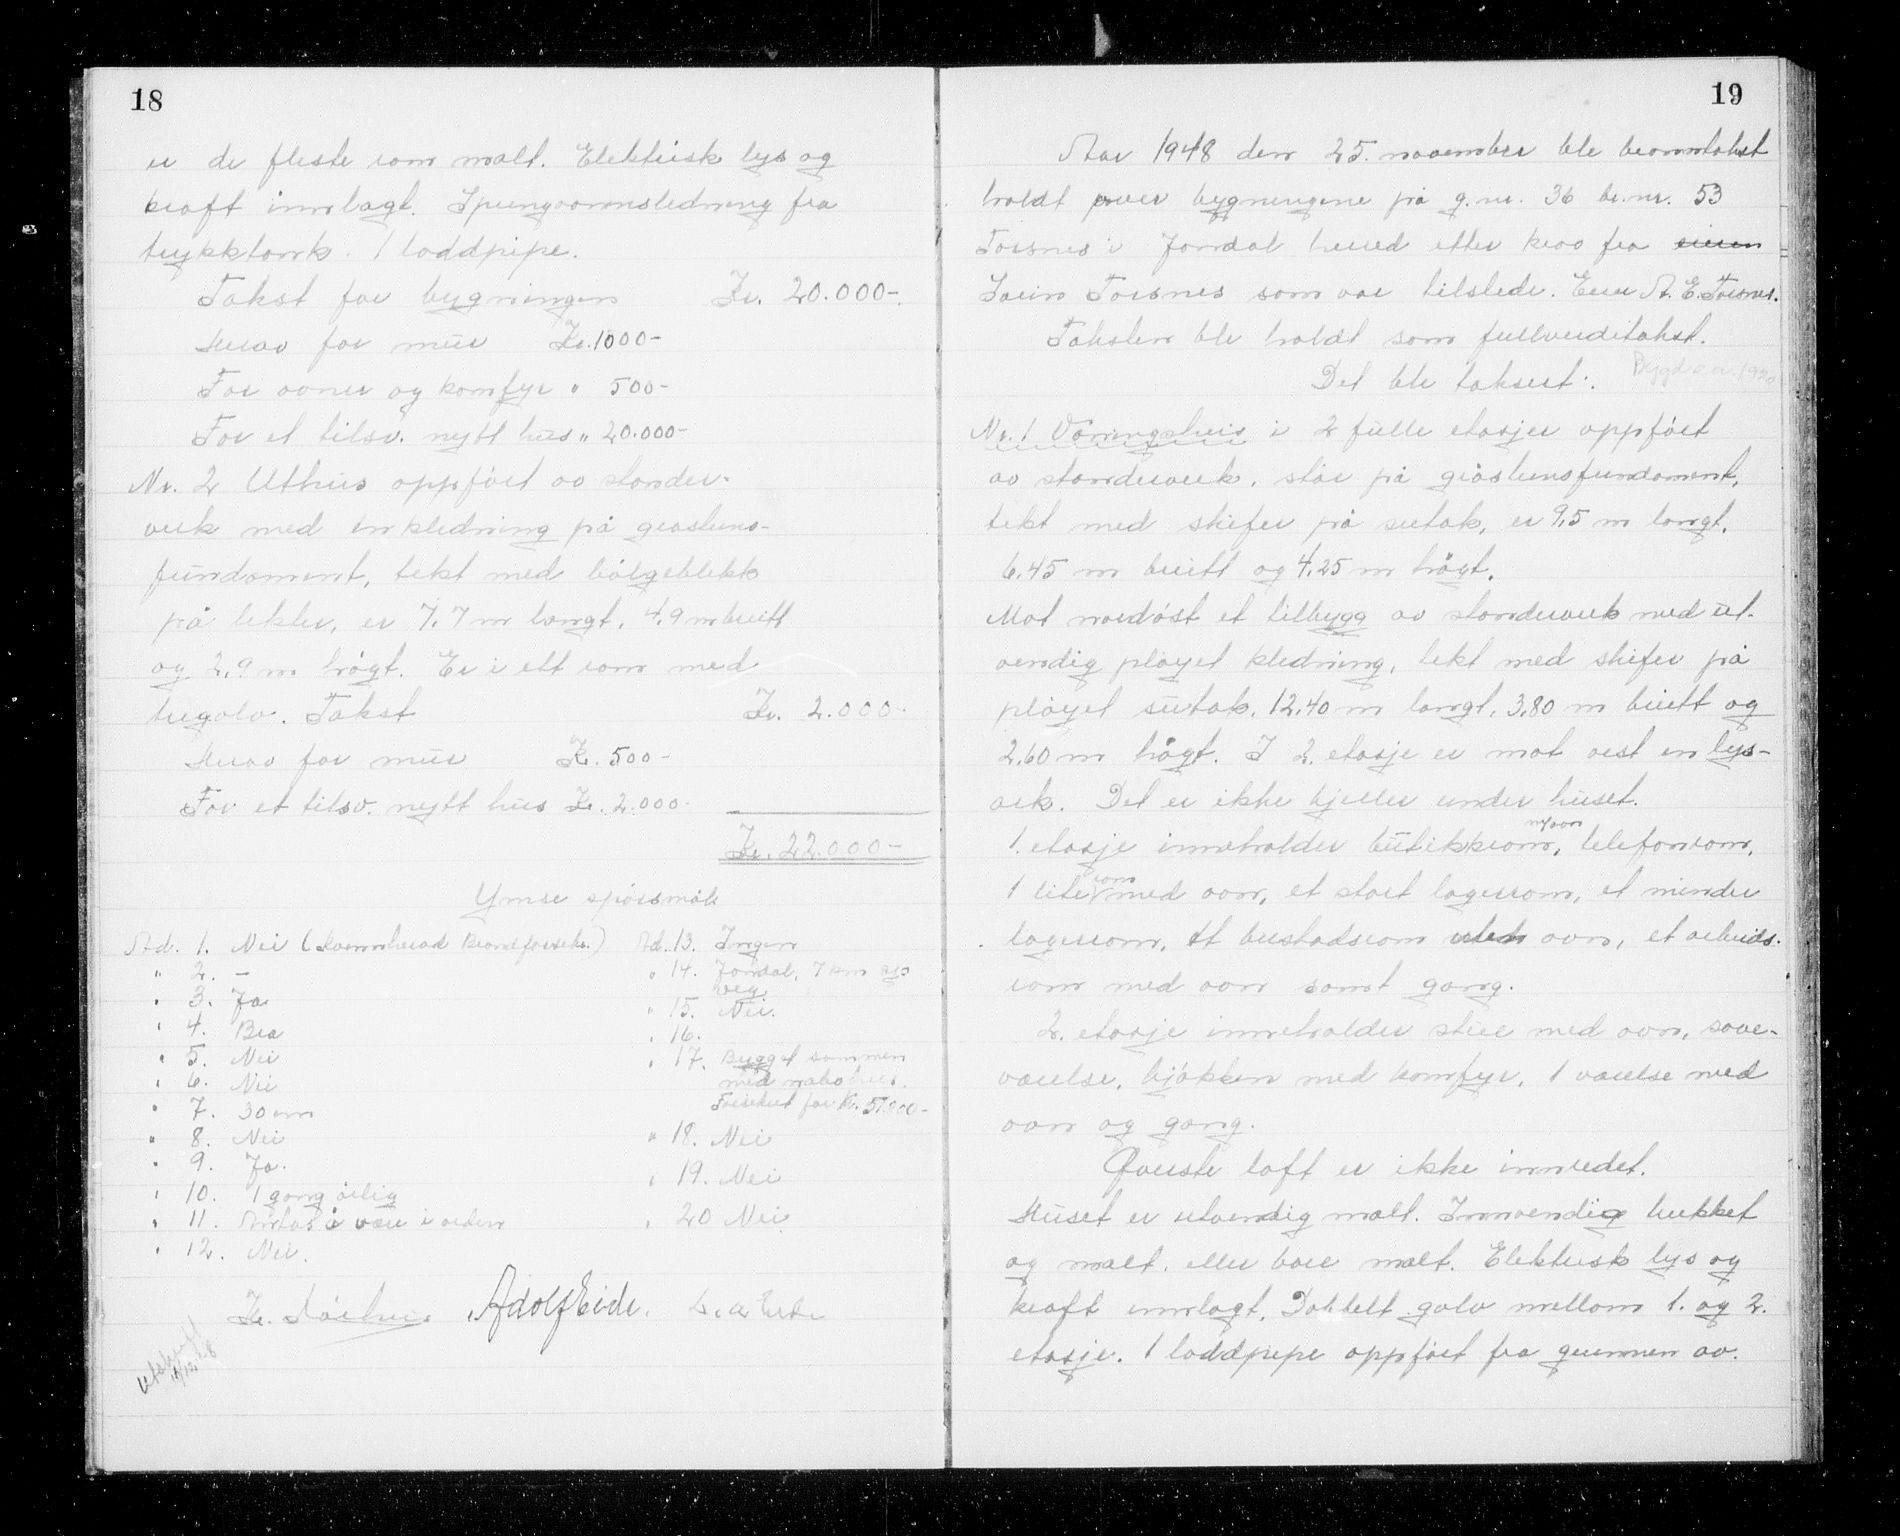 18
er de fleste rom malt. Elektrisk lys og
kraft innlagt. Springvannsledning fra
trykktank. 1 loddpipe.
Takst for bygningen Kr. 20.000-
Herav for mur Kr. 1000-
For ovner og komfyr " 500-
For et tilsv. nytt hus " 20.000-
Nr. 2 Uthus oppført av stender-
verk med enkledning på gråstens-
fundament, tekt med bølgeblekk
på lekter, er 7,7 m langt, 4,9 m breitt
og 2,9 m høgt. Er i ett rom med
tregolv. Takst Kr. 2.000-
Herav for mur Kr. 500-
For et tilsv. nytt hus Kr. 2.000-
Kr. 22.000-
Ymse spørsmål
Ad. 1. Nei (Kvinnherad Brannforsikr.)
" 2. -
" 3. Ja
" 4. Bra
" 5. Nei
" 6. Nei
" 7. 30 cm
" 8. Nei
" 9. Ja.
" 10. 1 gang årlig
" 11. Antas å være i orden
" 12. Nei.
Ad. 13. Ingen
" 14. Jondal, 7 km
veg
" 15. Nei.
" 16.
" 17. Bygget sammen
med nabohus.
Forsikret for Kr. 51.800-
" 18. Nei
" 19. Nei
" 20 Nei
Adolf Eide.
Utskrift
19
Aar 1948 den 25. november ble branntakst
holdt over bygningene på g.nr. 36 br.nr. 53
Torsnes i Jondal herred etter krav fra eieren
Torsnes som var tilstede. Eier A. E. Torsnes.
Taksten ble holdt som fullverditakst.
Det ble taksert: Bygd
Nr. 1 Våningshus i 2 fulle etasjer oppført
av stenderverk, står på gråstensfundament,
tekt med skifer på sutak, er 9,5 m langt,
6,45 m breitt og 4,25 m høgt.
Mot nordøst et tilbygg av stenderverk med ut-
vendig pløyet kledning, tekt med skifer på
pløyet sutak, 12,40 m langt, 3,80 m breitt og
2,60 m høgt. I 2. etasje er mot vest en lys-
ark. Det er ikke kjeller under huset.
m/ovn
1. etasje inneholder butikkrom, telefonrom,
rom
1 lite med ovn, et stort lagerrom, et mindre
lagerrom, et bustadsrom uten ovn, et arbeids-
rom med ovn samt gang.
2. etasje inneholder stue med ovn, sove-
værelse, kjøkken med komfyr, 1 værelse med
ovn og gang.
Øverste loft er ikke innredet.
Huset er utvendig malt. Innvendig trukket
og malt, eller bare malt. Elektrisk lys og
kraft innlagt. Dobbelt golv mellom 1. og 2.
etasje. 1 loddpipe oppført fra grunnen av.